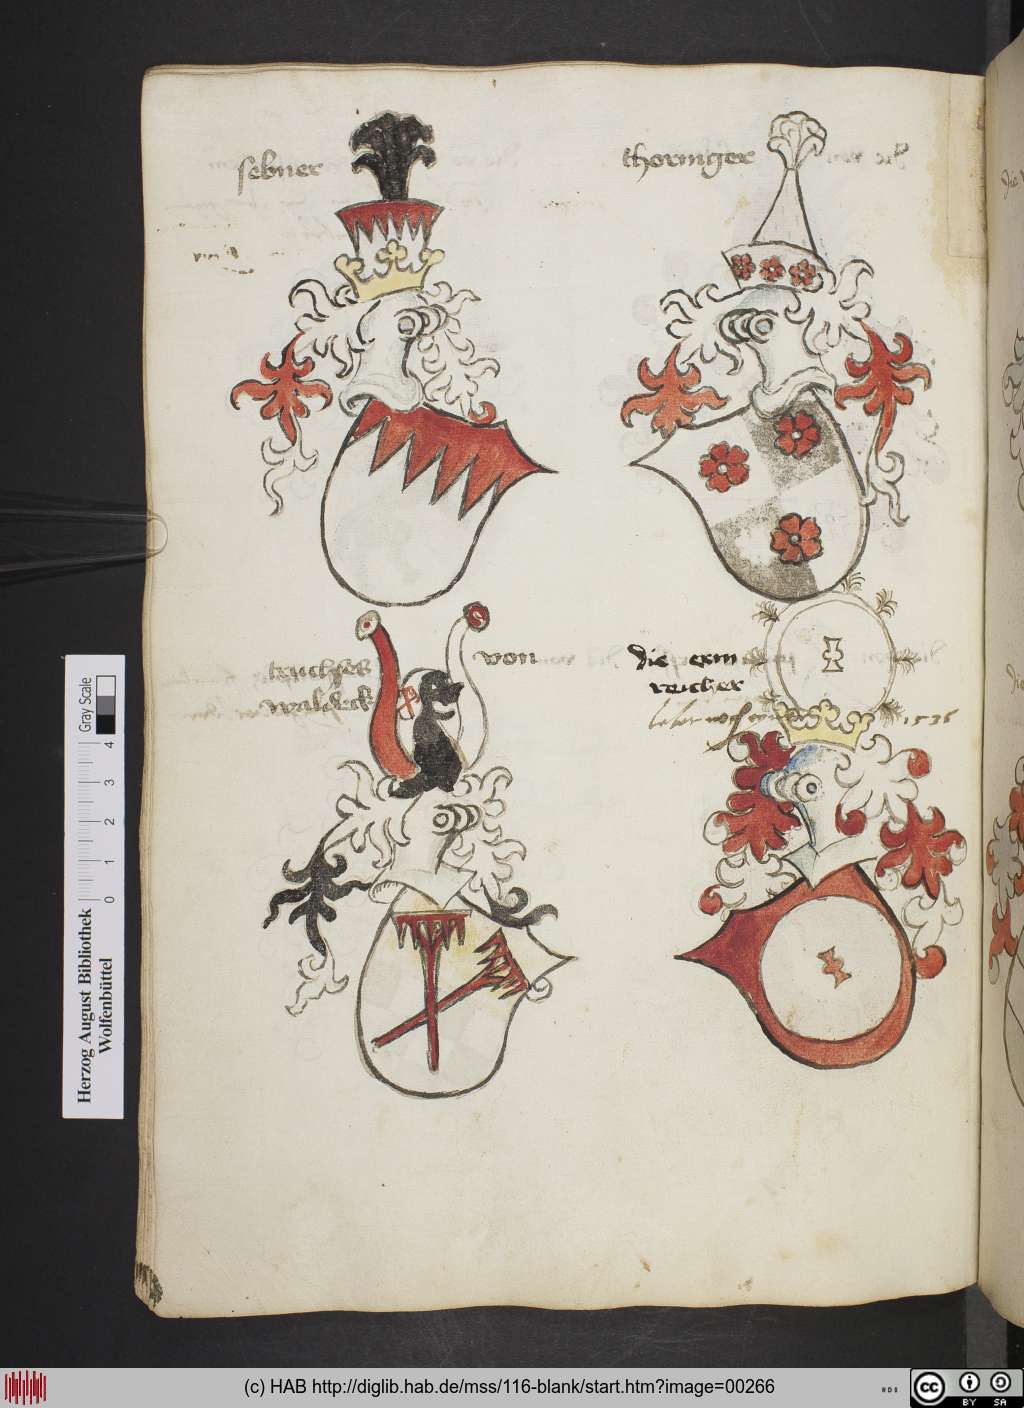 sebner
thoringer
truchses von
waldeck
die erm
reicher
1536
Herzog August Bibliothek
Wolfenbüttel
Gray Scale
0 1 2 3 4
(c) HAB http://diglib.hab.de/mss/116-blank/start.htm?image=00266
HAB
cc BY SA